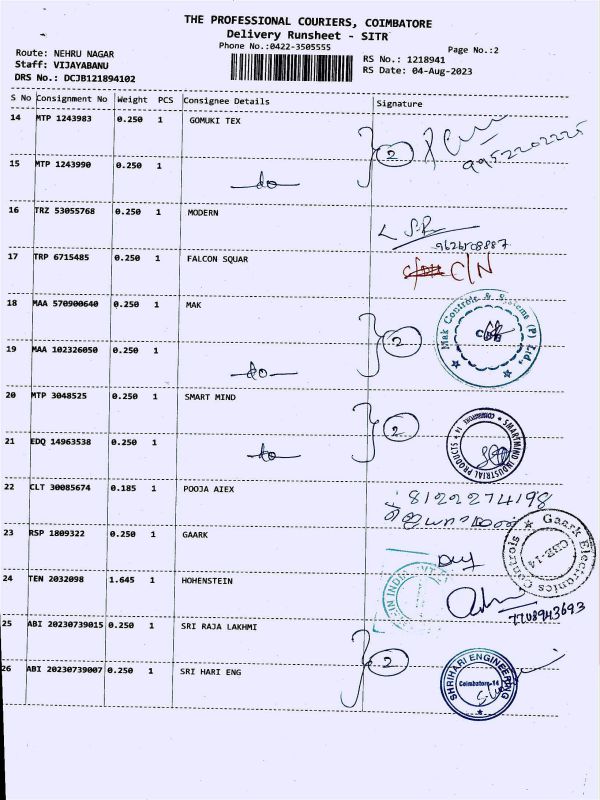 THE PROFESSIONAL COURIERS, COIMBATORE
Delivery Runsheet - SITR
Phone No.:0422-3505555
Page No.:2
Route: NEHRU NAGAR
Staff: VIJAYABANU
DRS No.: DCJB121894102
RS No.: 1218941
RS Date: 04-Aug-2023
S No Consignment No Weight PCS Consignee Details Signature
14 MTP 1243983 0.250 1 GOMUKI TEX 2 9952202225
15 MTP 1243990 0.250 1 do
16 TRZ 53055768 0.250 1 MODERN
17 TRP 6715485 0.250 1 FALCON SQUAR C/N
18 MAA 570900640 0.250 1 MAK 2 Mak Controls & Systems (P) Ltd.,
19 MAA 102326050 0.250 1 do
20 MTP 3048525 0.250 1 SMART MIND 2 SMARTMIND INDUSTRIAL PRODUCTS
21 EDQ 14963538 0.250 1 do
22 CLT 30085674 0.185 1 POOJA AIEX 8122274198
23 RSP 1809322 0.250 1 GAARK Gaark Electronics Controls CBE-14
24 TEN 2032098 1.645 1 HOHENSTEIN 7708943693
25 ABI 20230739015 0.250 1 SRI RAJA LAKHMI
26 ABI 20230739007 0.250 1 SRI HARI ENG 2 SHRIHARI ENGINEERING Coimbatore-14